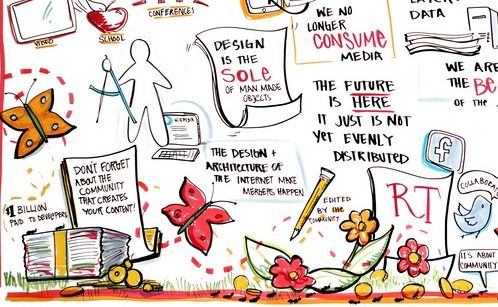 VIDEO
SCHOOL
CONFERENCE!
WE NO
LONGER
CONSUME
MEDIA
DATA
DESIGN
IS THE
SOLE
OF MAN MADE
OBJECTS
THE FUTURE
IS HERE
IT JUST IS NOT
YET EVENLY
DISTRIBUTED
WE ARE
THE BE
OF THE
THE DESIGN +
ARCHITECTURE OF
THE INTERNET MAKE
MERGERS HAPPEN
DON'T FORGET
ABOUT THE
COMMUNITY
THAT CREATES
YOUR CONTENT!
$1 BILLION
PAID TO DEVELOPERS
EDITED
BY THE
COMMUNITY
RT
f
COLLABOR
IT'S ABOUT
COMMUNITY